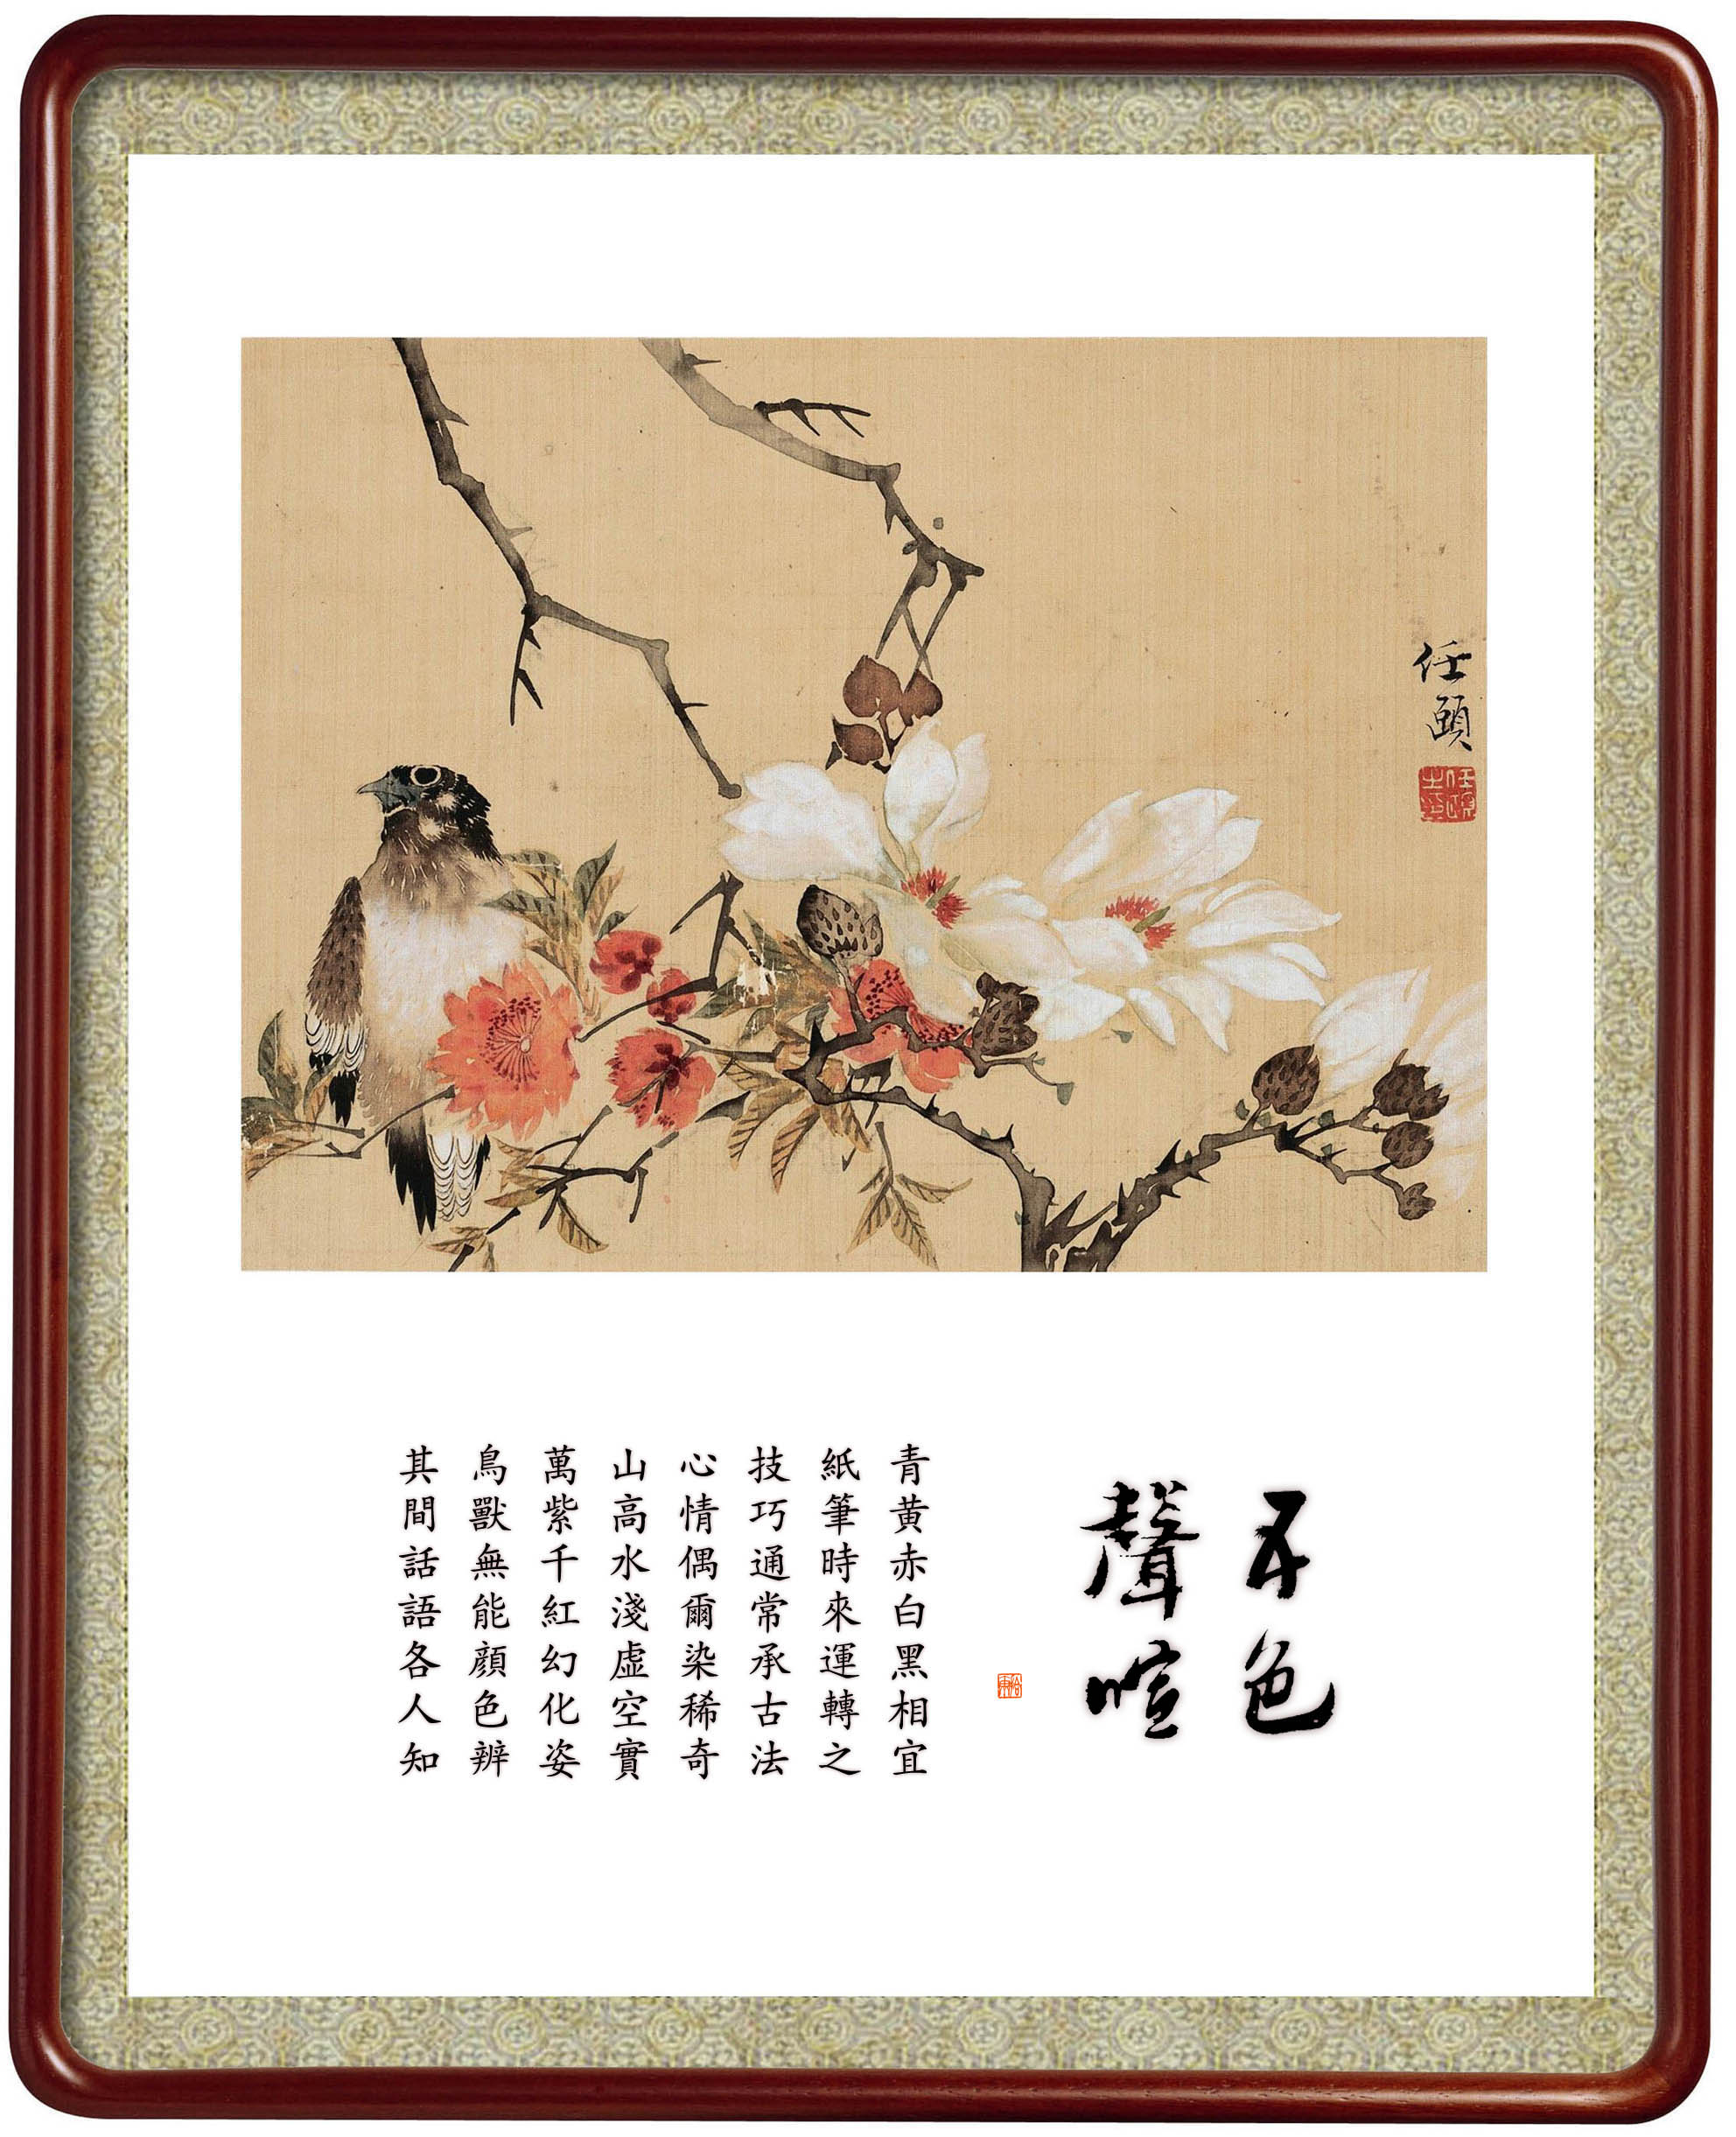 任頤
五色
聲喧
青黄赤白黑相宜
紙筆時來運轉之
技巧通常承古法
心情偶爾染稀奇
山高水淺虛空實
萬紫千紅幻化姿
鳥獸無能顏色辨
其間話語各人知